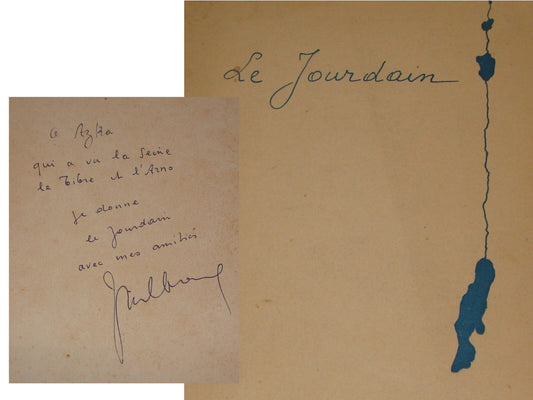 Le Jourdain
à Azka
qui a vu la Seine
le Tibre et l'Arno
je donne
le Jourdain
avec mes amitiés